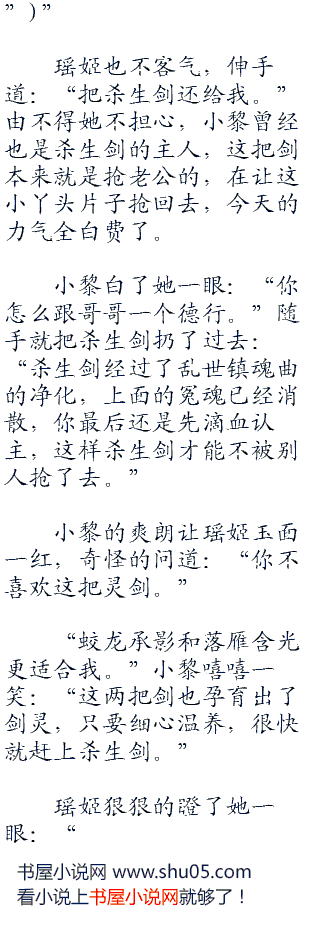 ”)”
瑶姬也不客气，伸手
道：“把杀生剑还给我。”
由不得她不担心，小黎曾经
也是杀生剑的主人，这把剑
本来就是抢老公的，在让这
小丫头片子抢回去，今天的
力气全白费了。
小黎白了她一眼：“你
怎么跟哥哥一个德行。”随
手就把杀生剑扔了过去：
“杀生剑经过了乱世镇魂曲
的净化，上面的冤魂已经消
散，你最后还是先滴血认
主，这样杀生剑才能不被别
人抢了去。”
小黎的爽朗让瑶姬玉面
一红，奇怪的问道：“你不
喜欢这把灵剑。”
“蛟龙承影和落雁含光
更适合我。”小黎嘻嘻一
笑：“这两把剑也孕育出了
剑灵，只要细心温养，很快
就赶上杀生剑。”
瑶姬狠狠的瞪了她一
眼：“
书屋小说网 www.shu05.com
看小说上书屋小说网就够了！